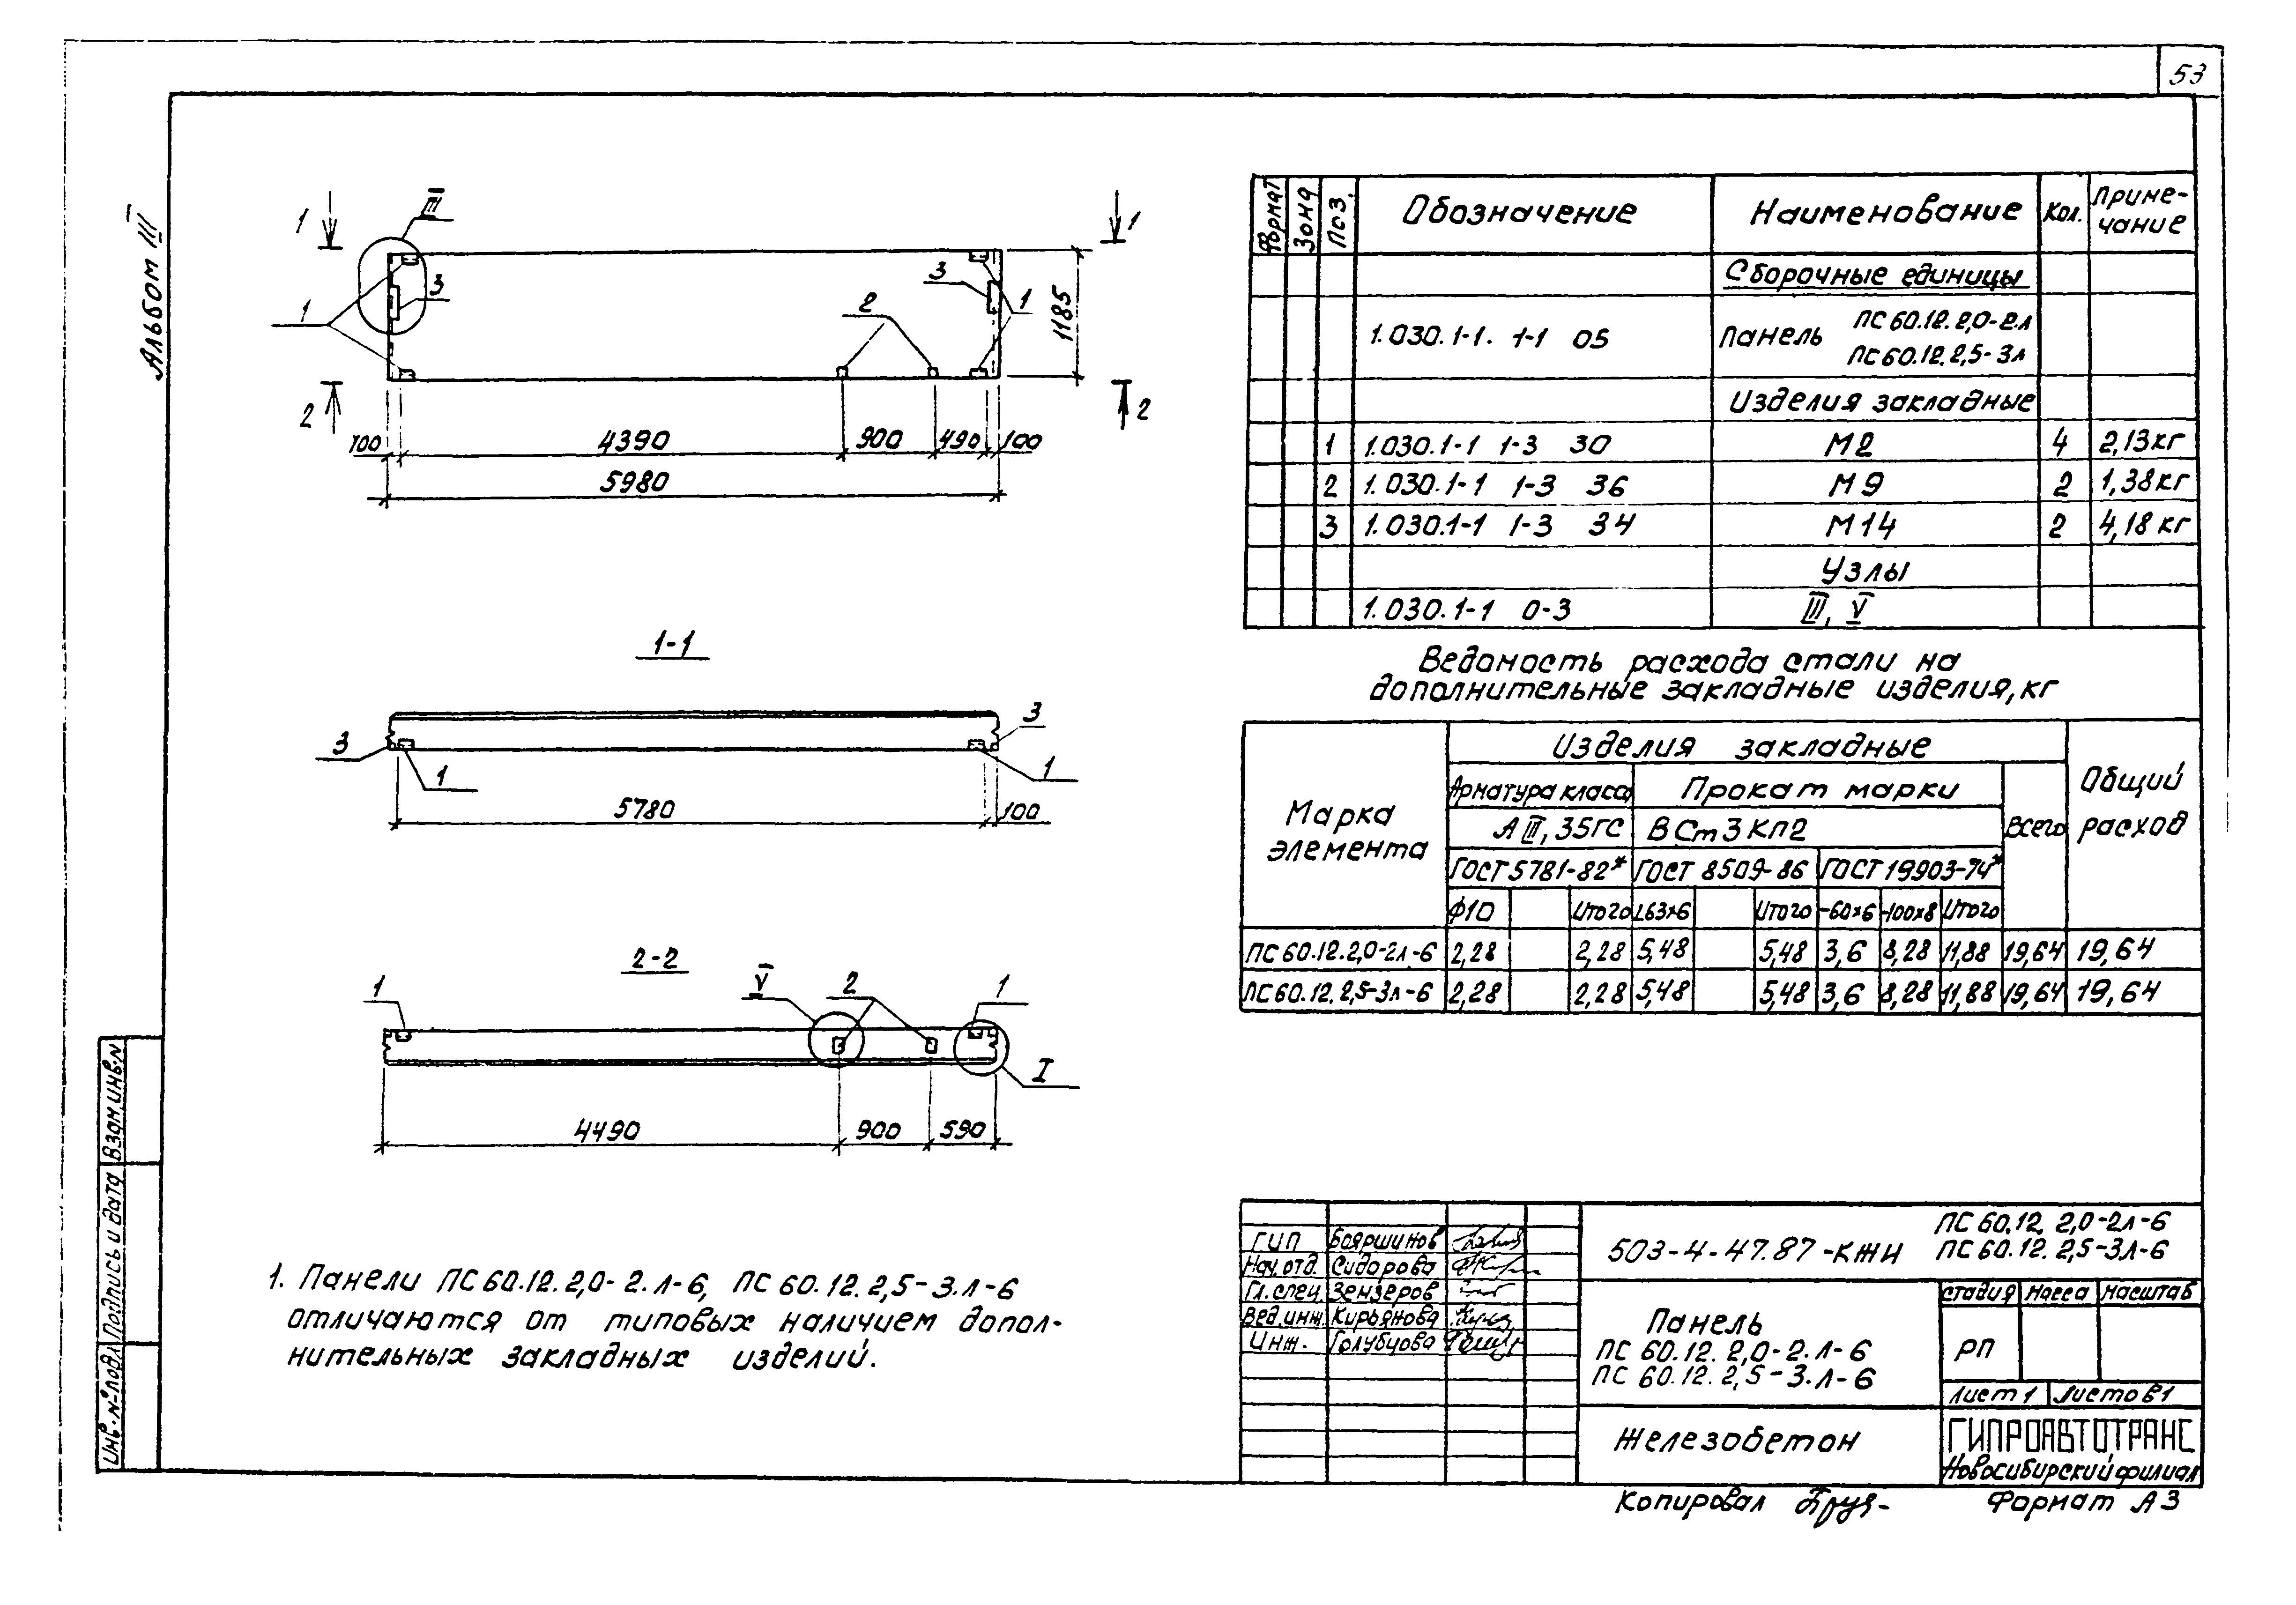 53
Альбом III
1
III
1
3
1
3
1
2
1185
2
2
100
4390
900
490
100
5980
1-1
3
1
3
1
5780
100
2-2
1
V
2
1
I
4490
900
590
1. Панели ПС 60.12.2,0-2.л-6, ПС 60.12.2,5-3.л-6
отличаются от типовых наличием допол-
нительных закладных изделий.
Формат Зона Поз. Обозначение Наименование Кол. Приме-
чание
Сборочные единицы
1.030.1-1. 1-1 05 Панель ПС 60.12.2,0-2.л
ПС 60.12.2,5-3л
Изделия закладные
1 1.030.1-1 1-3 30 М2 4 2,13кг
2 1.030.1-1 1-3 36 М9 2 1,38кг
3 1.030.1-1 1-3 34 М14 2 4,18кг
Узлы
1.030.1-1 0-3 III, V
Ведомость расхода стали на
дополнительные закладные изделия, кг
Марка
элемента
Изделия закладные
Общий
расход
Арматура класса Прокат марки
Всего
А III, 35ГС ВСт3Кп2
ГОСТ 5781-82* ГОСТ 8509-86 ГОСТ 19903-74*
ф10 Итого L63×6 Итого -60×6 -100×8 Итого
ПС 60.12.2,0-2л-6 2,28 2,28 5,48 5,48 3,6 8,28 11,88 19,64 19,64
ПС 60.12.2,5-3л-6 2,28 2,28 5,48 5,48 3,6 8,28 11,88 19,64 19,64
ГИП Бояршинов
Нач.отд. Сидорова
Гл.спец. Зензеров
Вед.инж. Кирьянова
Инж. Голубцова
503-4-47.87-КЖИ
ПС 60.12.2,0-2л-6
ПС 60.12.2,5-3л-6
Панель
ПС 60.12.2,0-2.л-6
ПС 60.12.2,5-3.л-6
стадия Масса Масштаб
РП
Лист 1 Листов 1
Железобетон
ГИПРОАВТОТРАНС
Новосибирский филиал
Копировал
Формат А3
Инв.№подл Подпись и дата Взам.инв.№